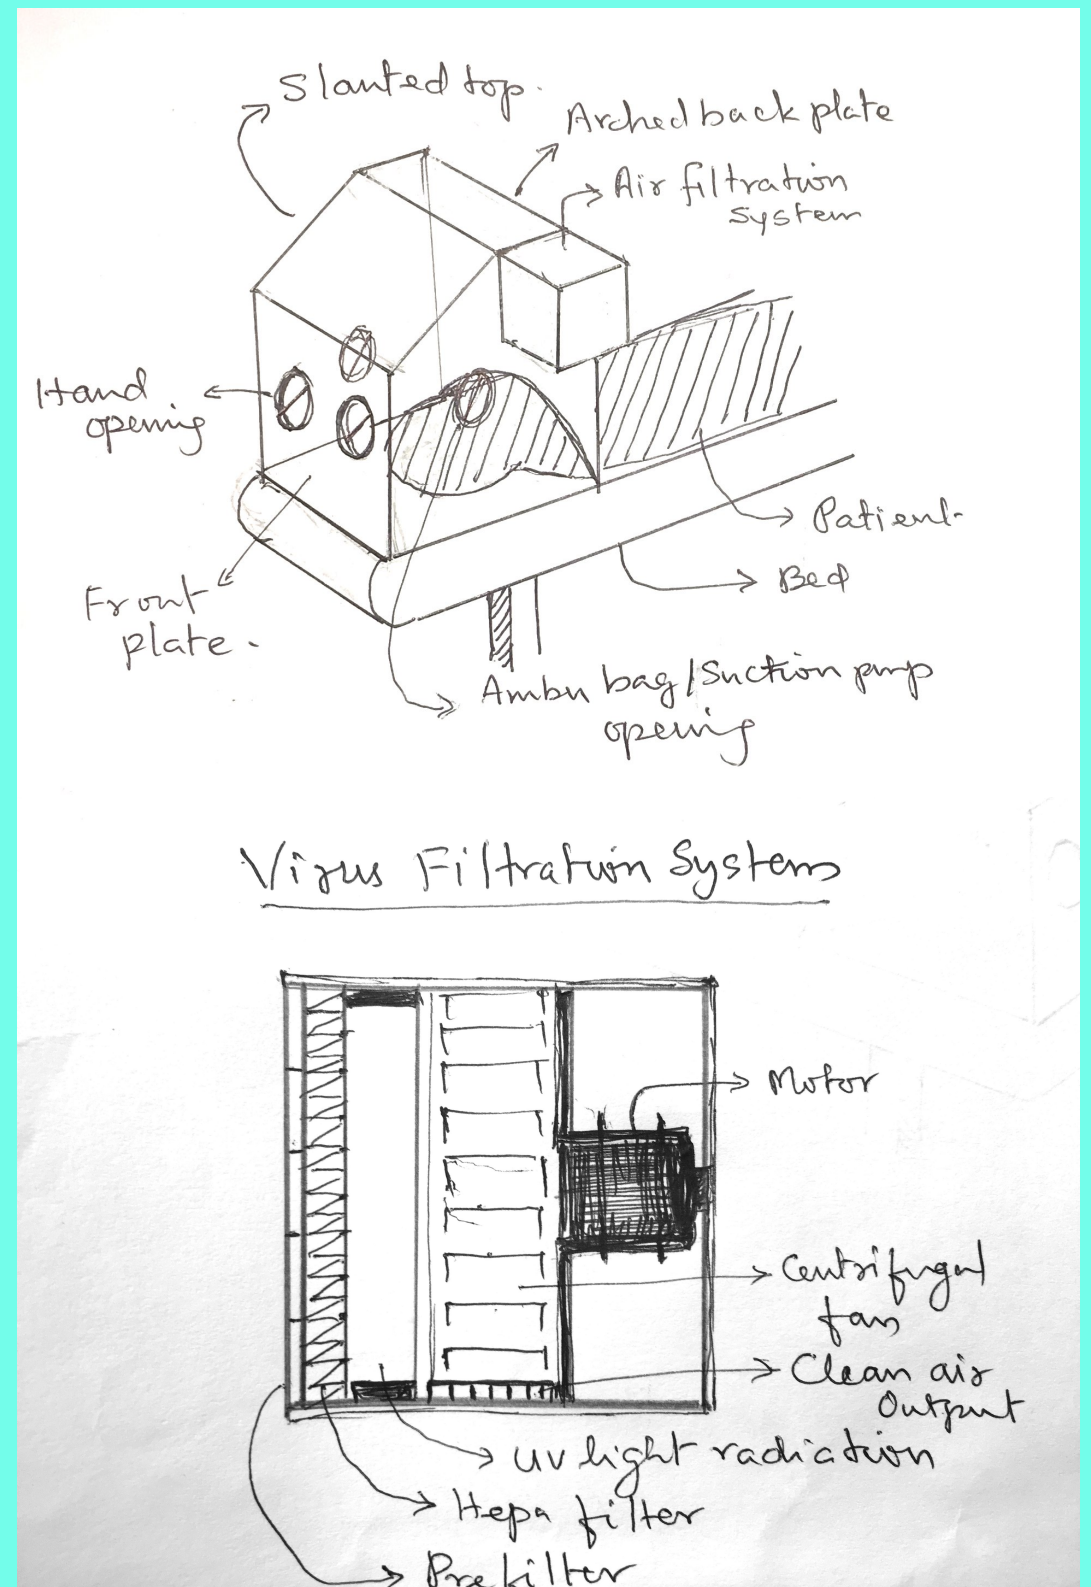 Slanted top.
Arched back plate
Air filtration
system
Hand
opening
Patient
Bed
Front
plate.
Ambu bag/Suction pump
opening
Virus Filtration System
Motor
Centrifugal
fan
Clean air
Output
UV light radiation
Hepa filter
Prefilter